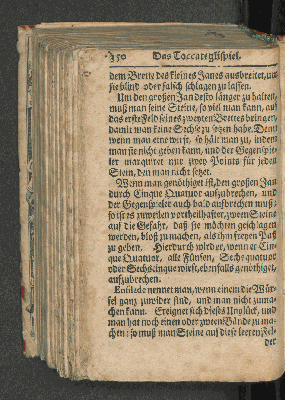 150 Das Toccategllspiel.
dem Brette des kleines Janes ausbreitet, um
sie blind oder falsch schlagen zu lassen.
Um den großen Jan desto länger zu halten,
muß man seine Steine, so viel man kann, auf
das erste Feld seines zweyten Brettes bringen,
damit man keine Sechse zu setzen habe. Denn
wenn man eine wirft, so hält man zu, indem
man sie nicht geben kann, und der Gegenspie-
ler marquiret nur zwey Points für jeden
Stein, den man nicht setzet.
Wenn man genöthiget ist, den großen Jan
durch Cinque Quatuor aufzubrechen, und
der Gegenspieler auch bald aufbrechen muß;
so ist es zuweilen vortheilhafter, zween Steine
auf die Gefahr, daß sie möchten geschlagen
werden, bloß zu machen, als ihm freyen Paß
zu geben. Hierdurch wird er, wenn er Cin-
que Quatuor, alle Fünfen, Sechs quatuor
oder Sechscinque wirft, ebenfalls genöthiget,
aufzubrechen.
Enfilade nennet man, wenn einem die Wür-
fel ganz zuwider sind, und man nicht zuma-
chen kann. Ereignet sich dieses Unglück, und
man hat noch einen oder zween Bände zu ma-
chen: so muß man Steine auf diese leeren Fel-
der